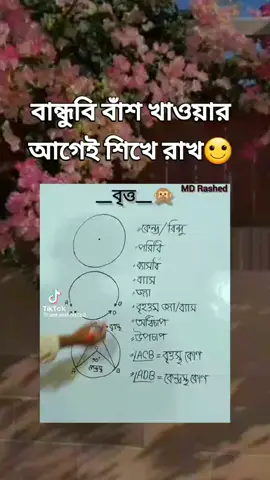 বান্ধুবি বাঁশ খাওয়ার
আগেই শিখে রাখ🙂
MD Rashed
__বৃত্ত__🙊
কেন্দ্র/বিন্দু
পরিধি
ব্যাসার্ধ
ব্যাস
জ্যা
বৃহত্তম জ্যা/ব্যাস
অধিচাপ
উপচাপ
∠ACB = বৃত্তস্থ কোণ
∠ADB = কেন্দ্রস্থ কোণ
TikTok